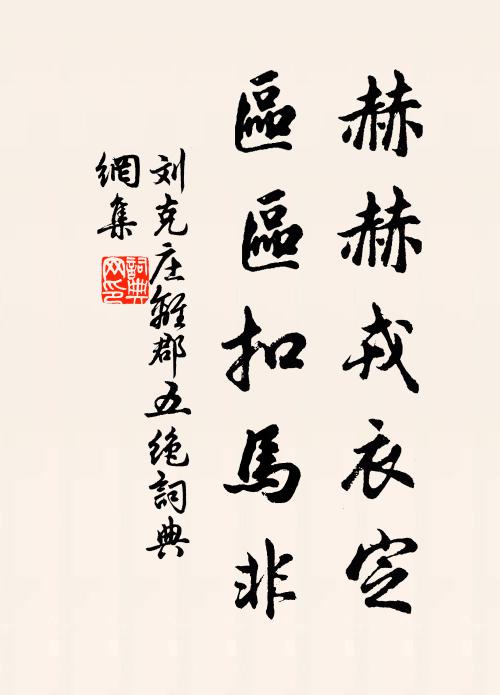 赫赫戎衣定
區區扣馬非
刘克庄雜郡五绝詞典
網集
詞典
网印